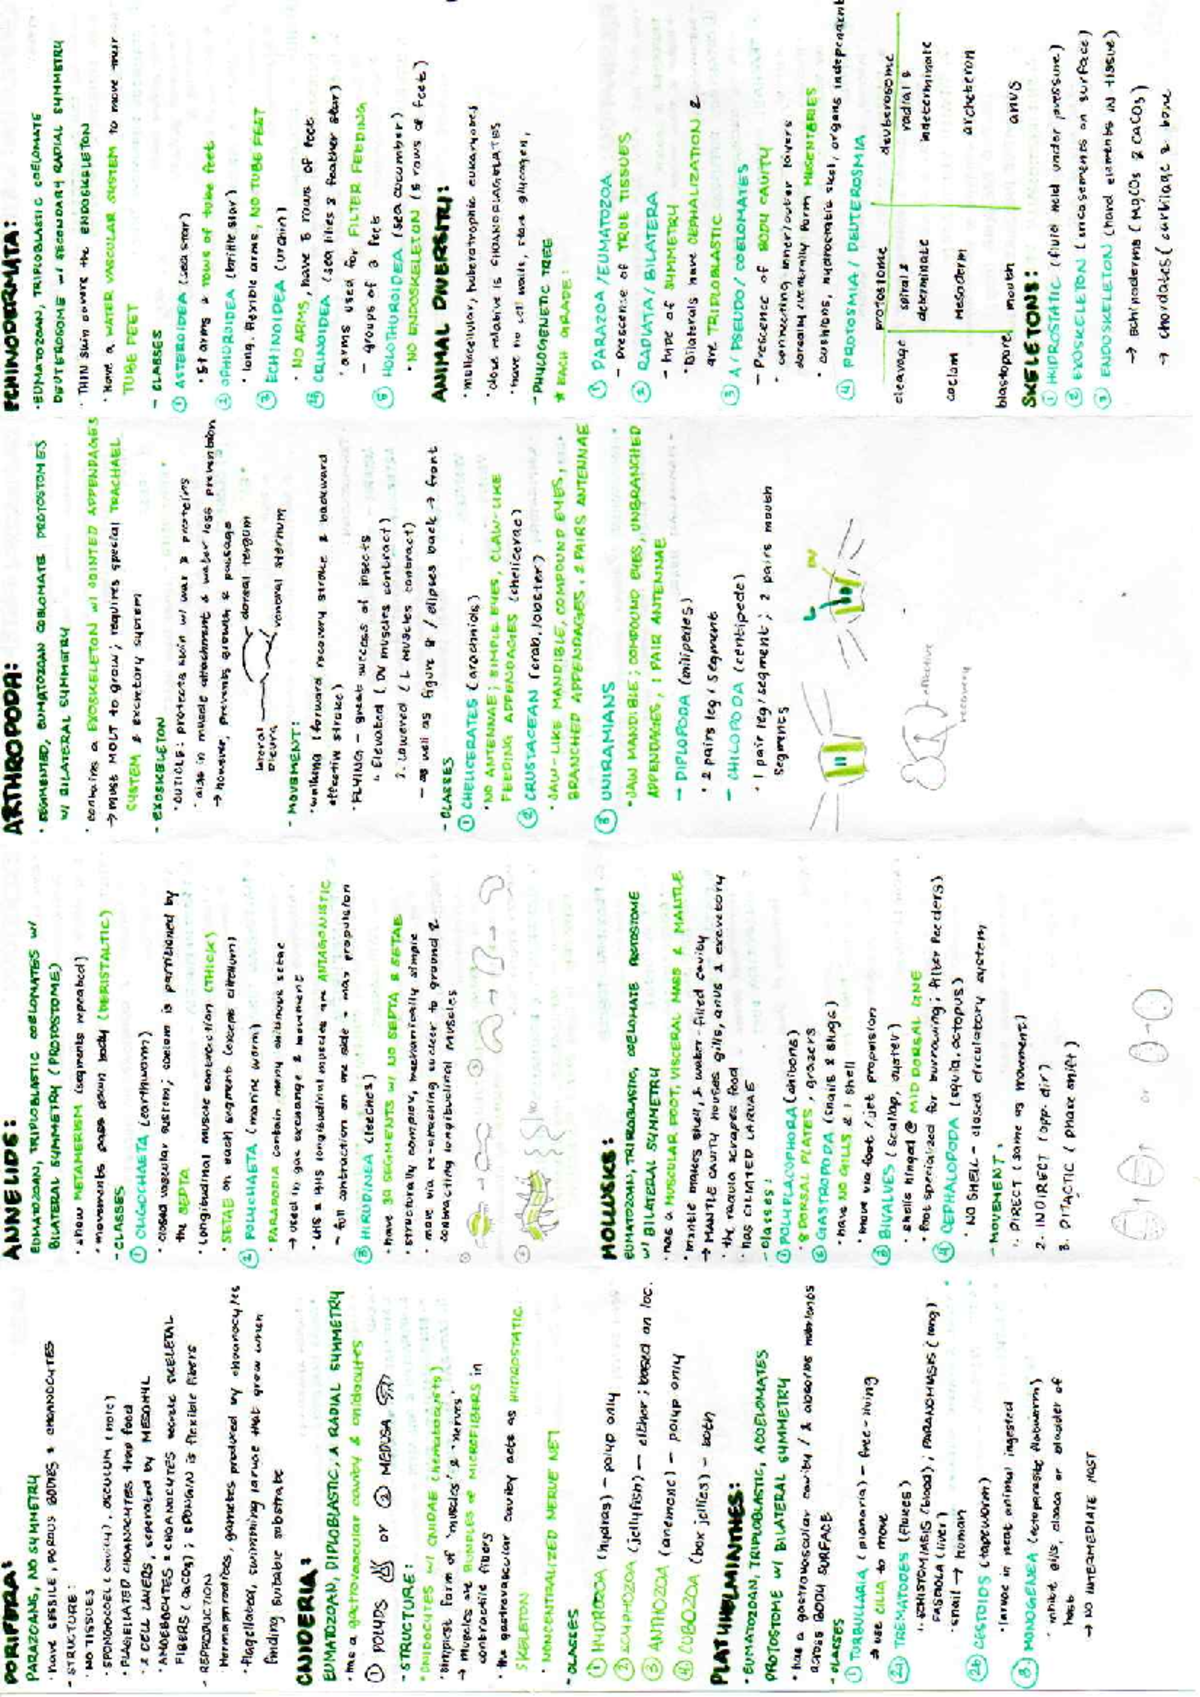 PORIFERA:
PARAZOANS, NO SYMMETRY
· have SESSILE, POROUS BODIES & CHOANOCYTES
- STRUCTURE:
· NO TISSUES
· SPONGOCOEL (cavity), OSCULUM (hole)
· FLAGELLATED CHOANOCYTES trap food
· 2 CELL LAYERS, seperated by MESOHYL
· AMOEBOCYTES & CHOANOCYTES secrete SKELETAL
FIBERS; SPONGIN is flexible fibers
- REPRODUCTION
· Hermaphrodites, gametes produced by choanocytes
· flagellated, swimming larvae that grow when
finding suitable substrate
CNIDERIA:
EUMATAZOAN, DIPLOBLASTIC, & RADIAL SYMMETRY
· has a gastrovascular cavity & cnidocytes
① POLYPS or ② MEDUSA
- STRUCTURE:
· CNIDOCYTES w/ CNIDAE (nematocysts)
· simplest form of 'muscles' & 'nerves'
→ muscles are BUNDLES of MICROFIBERS in
contractile fibers
· the gastrovascular cavity acts as HYDROSTATIC
SKELETON
· NONCENTRALIZED NERVE NET
- CLASSES
① HYDROZOA (hydras) - polyp only
② SCYPHOZOA (jellyfish) - either; based on loc.
③ ANTHOZOA (anemone) - polyp only
④ CUBOZOA (box jellies) - both
PLATYHELMINTHES:
· EUMATOZOAN, TRIPLOBLASTIC, ACOELOMATES
PROTOSTOME w/ BILATERAL SYMMETRY
· has a gastrovascular cavity / & absorbs materials
across BODY SURFACE
- CLASSES
① TURBULARIA (planaria) - free-living
→ use CILIA to move
②a TREMATODES (flukes)
FASCIOLA (liver)
· snail → human
②b CESTOIDS (tapeworm)
· larvae in meat animal ingested
③ MONOGENEA (ectoparasite flatworms)
· inhibit gills, cloaca or bladder of
host
→ NO INTERMEDIATE HOST
ANNELIDS:
EUMATOZOAN, TRIPLOBLASTIC COELOMATES w/
BILATERAL SYMMETRY (PROTOSTOME)
· show METAMERISM (segments repeated)
· movements pass down body (PERISTALTIC)
- CLASSES
① OLIGOCHAETA (earthworm)
· closed vascular system; coelom is partitioned by
the SEPTA
· Longitudinal muscle contraction (THICK)
· SETAE on each segment (except clitellum)
② POLYCHAETA (marine worm)
· PARAPODIA contain many chitinous setae
→ used in gas exchange & movement
· LHS & RHS longitudinal muscles are ANTAGONISTIC
- full contraction on one side - max propulsion
③ HIRUDINEA (leeches)
· have 34 SEGMENTS w/ NO SEPTA & SETAE
· structurally complex, mechanically simple
· move via re-attaching sucker to ground &
contracting longitudinal muscles
MOLLUSKS:
EUMATOZOAN, TRIPLOBLASTIC, COELOMATE PROTOSTOME
w/ BILATERAL SYMMETRY
· has a MUSCULAR FOOT, VISCERAL MASS & MANTLE
· mantle makes shell, & water-filled cavity
→ MANTLE CAVITY houses gills, anus & excretory
· the radula scrapes food
· has CILIATED LARVAE
- classes:
① POLYPLACOPHORA (chitons)
· 8 DORSAL PLATES, grazers
② GASTROPODA (snails & slugs)
· have NO GILLS & 1 shell
· move via foot / jet propulsion
③ BIVALVES (scallop, oyster)
· shells hinged @ MID DORSAL LINE
· foot specialized for burrowing; filter feeders
④ CEPHALOPODA (squid, octopus)
· NO SHELL - closed circulatory system
- MOVEMENT:
1. DIRECT (same as movement)
2. INDIRECT (opp. dir)
3. DITACTIC (phase shift)
or
ARTHROPODA:
· SEGMENTED, EUMATOZOAN COELOMATE PROTOSTOMES
w/ BILATERAL SYMMETRY
· contains a EXOSKELETON w/ JOINTED APPENDAGES
→ must MOLT to grow; requires special TRACHAEL
SYSTEM & excretory system
- EXOSKELETON
· CUTICLE: protects skin w/ wax & proteins
· aids in muscle attachment & water loss prevention
→ however, prevents growth & passage
lateral pleura
dorsal tergum
ventral sternum
- MOVEMENT:
· walking (forward recovery stroke & backward
effective stroke)
· FLYING - great success of insects
1. Elevated (DV muscles contract)
2. Lowered (L muscles contract)
- as well as figure 8 / elipses back → front
- CLASSES
① CHELICERATES (arachnids)
· NO ANTENNAE; SIMPLE EYES, CLAW-LIKE
FEEDING APPENDAGES (chelicerae)
② CRUSTACEAN (crab, lobster)
· JAW-LIKE MANDIBLE, COMPOUND EYES,
BRANCHED APPENDAGES, 2 PAIRS ANTENNAE
③ UNIRAMIANS
· JAW MANDIBLE; COMPOUND EYES, UNBRANCHED
APPENDAGES, 1 PAIR ANTENNAE
- DIPLOPODA (milipedes)
· 2 pairs leg / segment
- CHILOPODA (centipede)
· 1 pair leg / segment; 2 pairs mouth
segments
L
DV
effective
recovery
ECHINODERMATA:
· EUMATOZOAN, TRIPLOBLASTIC COELOMATE
DEUTEROSOME w/ SECONDARY RADIAL SYMMETRY
· THIN skin covers the ENDOSKELETON
· Have a WATER VASCULAR SYSTEM to move their
TUBE FEET
- CLASSES
① ASTEROIDEA (sea star)
· 5+ arms & rows of tube feet
② OPHIUROIDEA (brittle star)
· long, flexible arms, NO TUBE FEET
③ ECHINOIDEA (urchin)
· NO ARMS, have 5 rows of feet
④ CRINOIDEA (sea lilies & feather star)
· arms used for FILTER FEEDING
- groups of 3 feet
⑤ HOLOTHOROIDEA (sea cucumber)
· NO ENDOSKELETON (5 rows of feet)
ANIMAL DIVERSITY:
· multicellular, heterotrophic eukaryotes
· close relative is CHOANOFLAGELLATES
· have no cell walls, store glycogen,
- PHYLOGENETIC TREE
★ EACH GRADE:
① PARAZO / EUMATOZOA
- prescence of TRUE TISSUES
② RADIATA / BILATERA
- type of SYMMETRY
· bilaterals have CEPHALIZATION &
are TRIPLOBLASTIC
③ A / PSEUDO / COELOMATES
- Prescence of BODY CAVITY
· connecting inner/outer layers
dorsally & ventrally form MESENTARIES
· cushions, hydrostatic skel, organs independent
④ PROTOSMIA / DEUTEROSMIA
protostome deuterosome
cleavage spiral & determinate radial & indeterminate
coelom mesoderm archeteron
blastopore mouth anus
SKELETONS:
① HYDROSTATIC (fluid held under pressure)
② EXOSKELETON (encasements on surface)
③ ENDOSKELETON (hard elements in tissue)
→ echinoderms (MgCO3 & CaCO3)
→ chordates (cartilage & bone